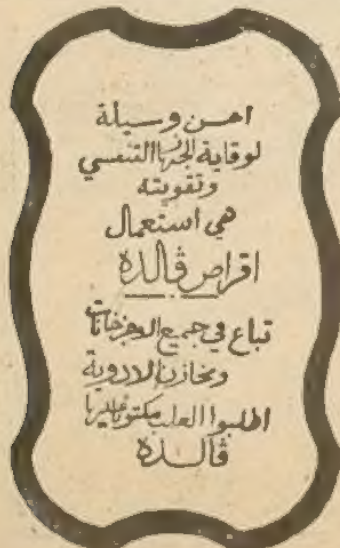 امن وسيلة
لوقاية الجهاز التنفسي
وتقويته
هي استعمال
اقراص ڤالدة
تباع في جميع الاجزخانات
ومخازن الادوية
اطلبوا العلب مكتوبا عليها
ڤالدة